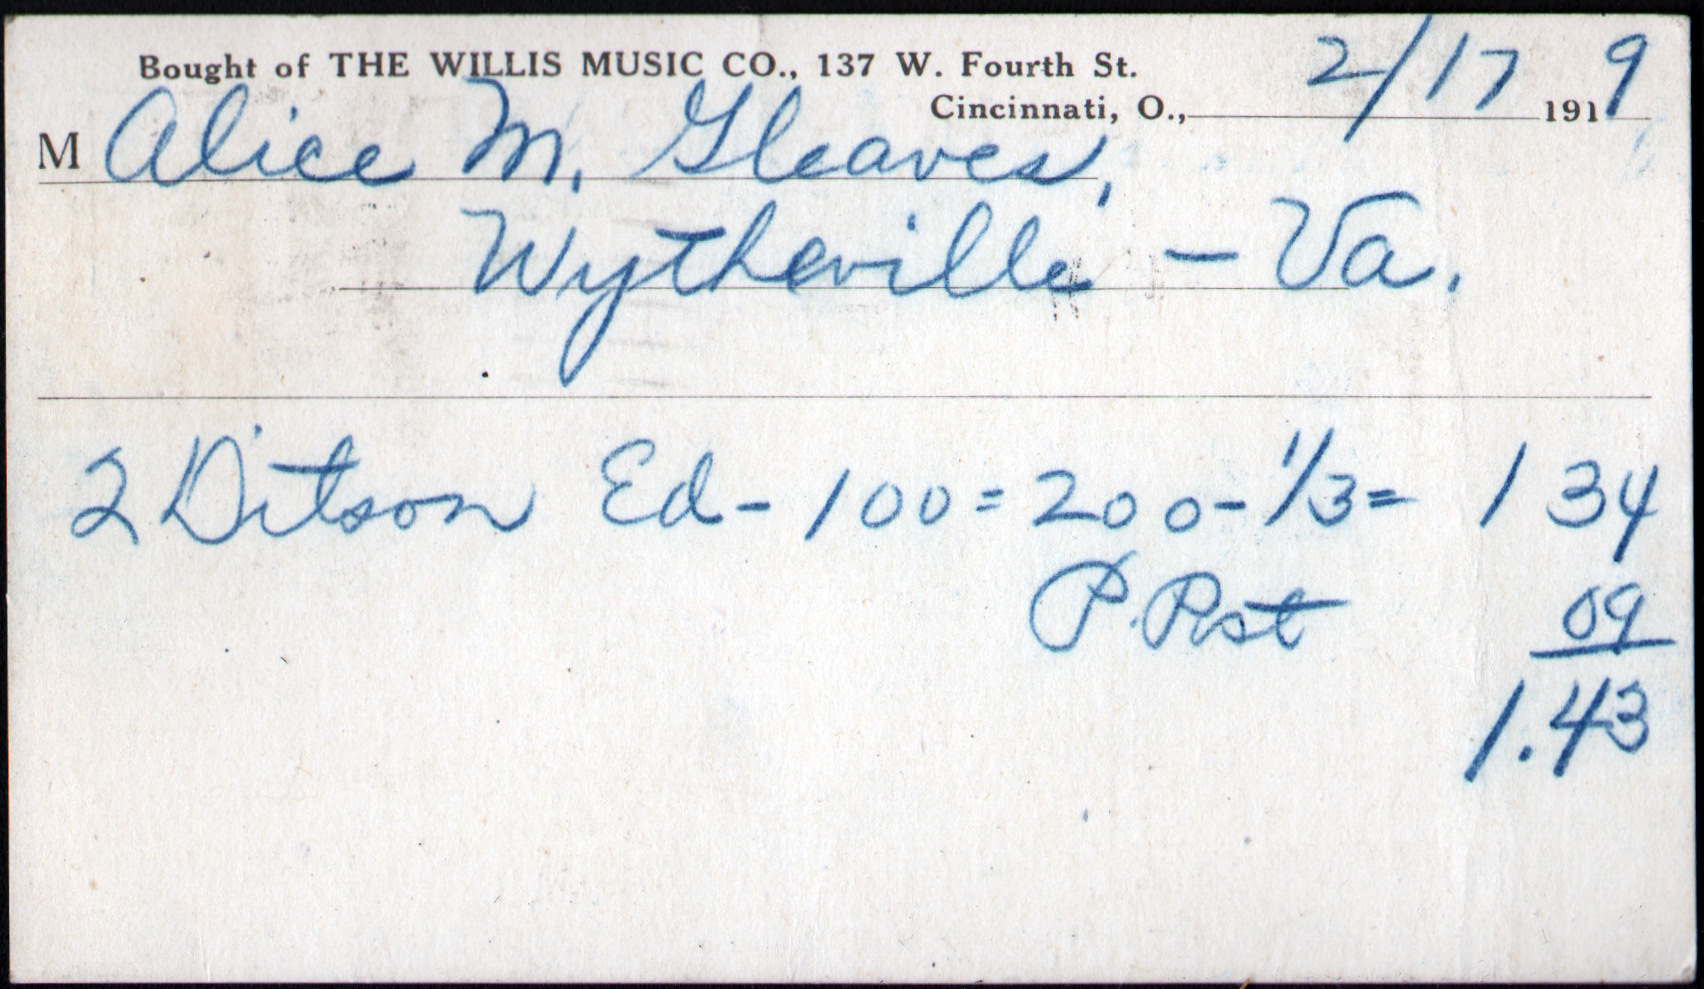 Bought of THE WILLIS MUSIC CO., 137 W. Fourth St.
Cincinnati, O., 2/17 1919
M Alice M. Gleaves,
Wytheville - Va.
2 Ditson Ed - 100 = 200 - 1/3 = 1 34
P. Post 09
1.43